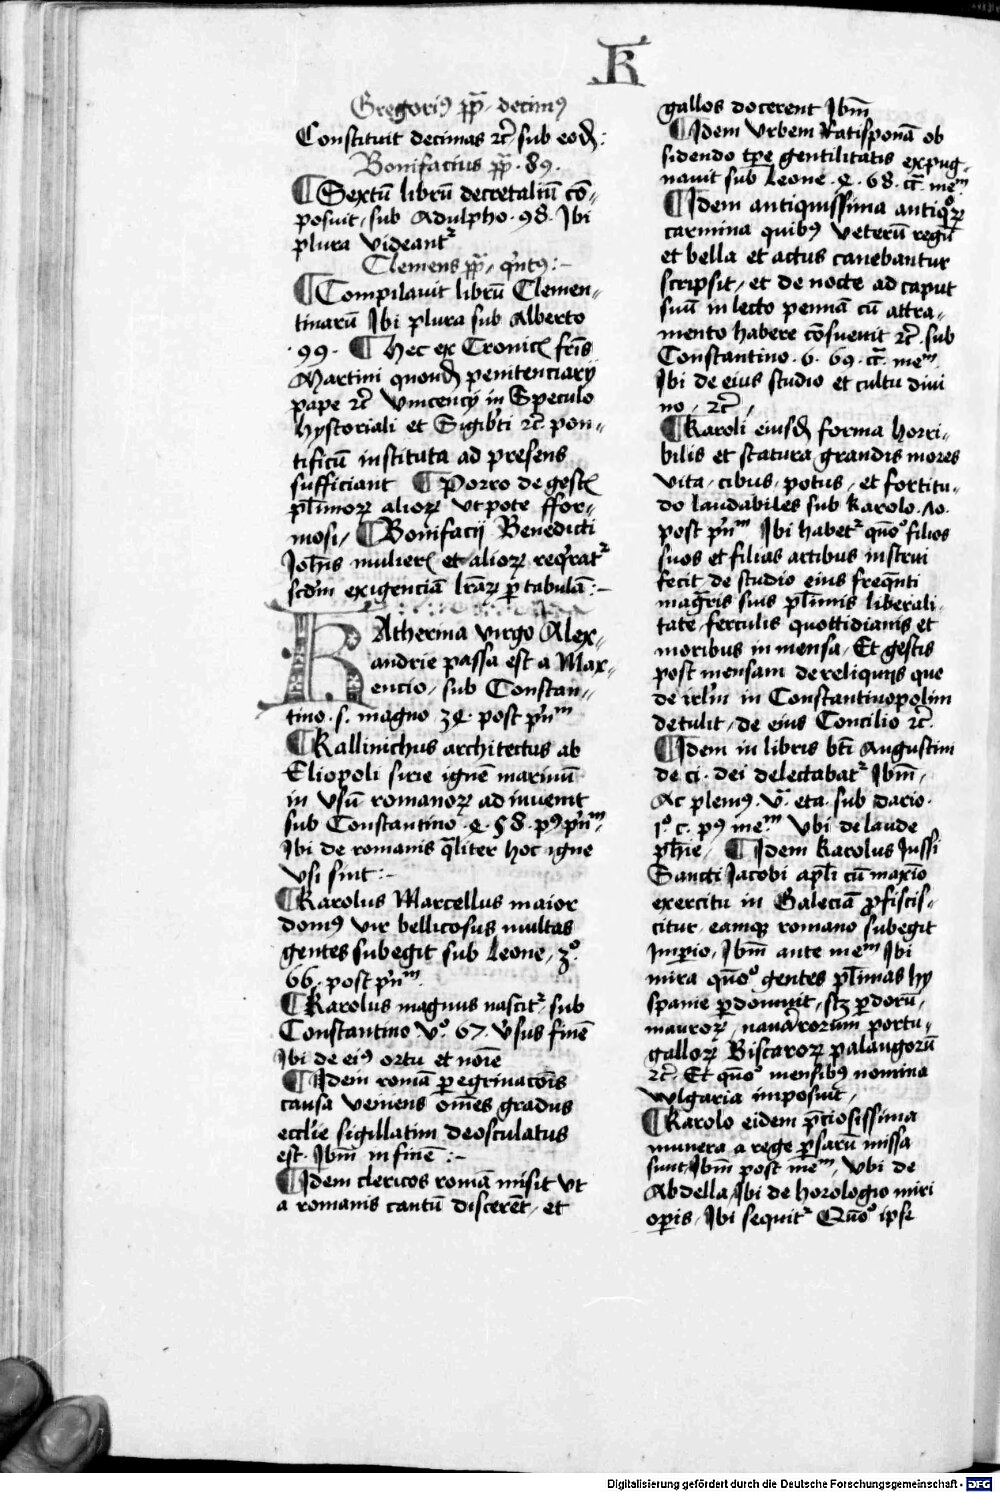 K
Gregoriꝰ pp̄ · decimꝰ
Constituit decimas ⁊c̄ · sub eod̄ :
Bonifacius pp̄ · 89 ·
¶ Sextū librū decretaliū cō-
posuit · sub Adulpho · 98 · Ibi
plura videantʳ
Clemens pp̄ · qͥntꝰ : –
¶ Compilauit librū Clemen-
tinarū Ibi plura sub Alberto
· 99 · ¶ Hec ex Cronicꝭ fr̄is
Martini quond̄ penitenciarij
pape ⁊c̄ Vincencij in Speculo
hystoriali et Sigibt̄i ⁊c̄ pon-
tificū instituta ad presens
sufficiant ¶ Porro de gestꝭ
pl̄imoꝝ alioꝝ vtpote ffor-
mosi / ¶ Bonifacij Benedicti
Joh̄is mulierꝭ et alioꝝ reqͥratʳ
scd̄m exigenciā lr̄aꝝ ꝑ tabulā : –
Katherina virgo Alex-
andrie passa est a Max-
encio / sub Constan-
tino · f · magno · 3ꝗ · post pn̄ᵐ
¶ Kallinichus architectus ab
Eliopoli sirie ignē marinū
in vsū romanoꝝ ad inuenit
sub Constantino · ꝗ · 58 · pꝰ pn̄ᵐ ·
Ibi de romanis qͣliter hoc igne
vsi sint : –
¶ Karolus Marcellus maior
domꝰ vir bellicosus multas
gentes subegit sub Leone · 3ᵒ ·
66 · post pn̄ᵐ
¶ Karolus magnus nascitʳ sub
Constantino Vᵒ · 67 · v̓sus finē
Ibi de eiꝰ ortu et noīe
¶ Idem romā ꝑegrinacōis
causa veniens om̄es gradus
eccl̄ie sigillatim deosculatus
est · Ibm̄ in fine : –
¶ Idem clericos romā misit vt
a romanis cantū discerēt / et
gallos docerent Ibm̄
¶ Idem vrbem Ratisponā ob
sidendo tp̄e gentilitatis expug-
nauit sub Leone · ꝗ · 68 · cͣ meᵐ
¶ Idem antiquissima antiqͦꝝ
carmina quibꝰ veterū regū
et bella et actus canebantur
scripsit / et de nocte ad caput
suū in lecto pennā cū attra-
mento habere cōsueuit ⁊c̄ · sub
Constantino · 6 · 69 · cͣ meᵐ
Ibi de eius studio et cultu diui
no / ⁊c̄ /
¶ Karoli eiusd̄ forma horri-
bilis et statura grandis mores
vita · cibus · potus · et fortitu-
do laudabiles sub Karolo · 10 ·
post pn̄ᵐ Ibi habetʳ qūoͦ filios
suos et filias artibus instrui
fecit de studio eius freqn̄ti
magr̄is suis pl̄imis liberali-
tate · ferculis quottidianis et
moribus in mensa / Et gestis
post mensam de reliquijs que
de irl̄m in Constantinopolim
detulit / de eius Concilio ⁊c̄
¶ Idem in libris bt̄i Augustini
de ci · dei delectabatʳ Ibm̄ /
Ac pleniꝰ · vͣ · eta · sub dario ·
1ᵒ · c · pꝰ ineᵐ Vbi de laude
ph̄ie / ¶ Idem Karolus Iussi
Sancti Jacobi apl̄i cū maxīo
exercitu in Galeciā ꝓfiscis-
citur · eamqꝫ romano subegit
Imꝑio · Ibm̄ ante meᵐ Ibi
mira qūoͦ gentes pl̄imas hy
spanie ꝑdomuit · scꝫ ꝑdorū /
mauroꝝ / nauarrorum portu-
galloꝝ Biscaroꝝ palangorū
⁊c̄ · Et qūoͦ mensibꝰ nomina
wlgaria imposuit /
¶ Karolo eidem p̄ciosissima
munera a rege ꝑsarū missa
sunt / Ibm̄ post meᵐ / Vbi de
Abdella / Ibi de horologio miri
oꝑis / Ibi sequitʳ Qūoͦ ipse
Digitalisierung gefördert durch die Deutsche Forschungsgemeinschaft - DFG